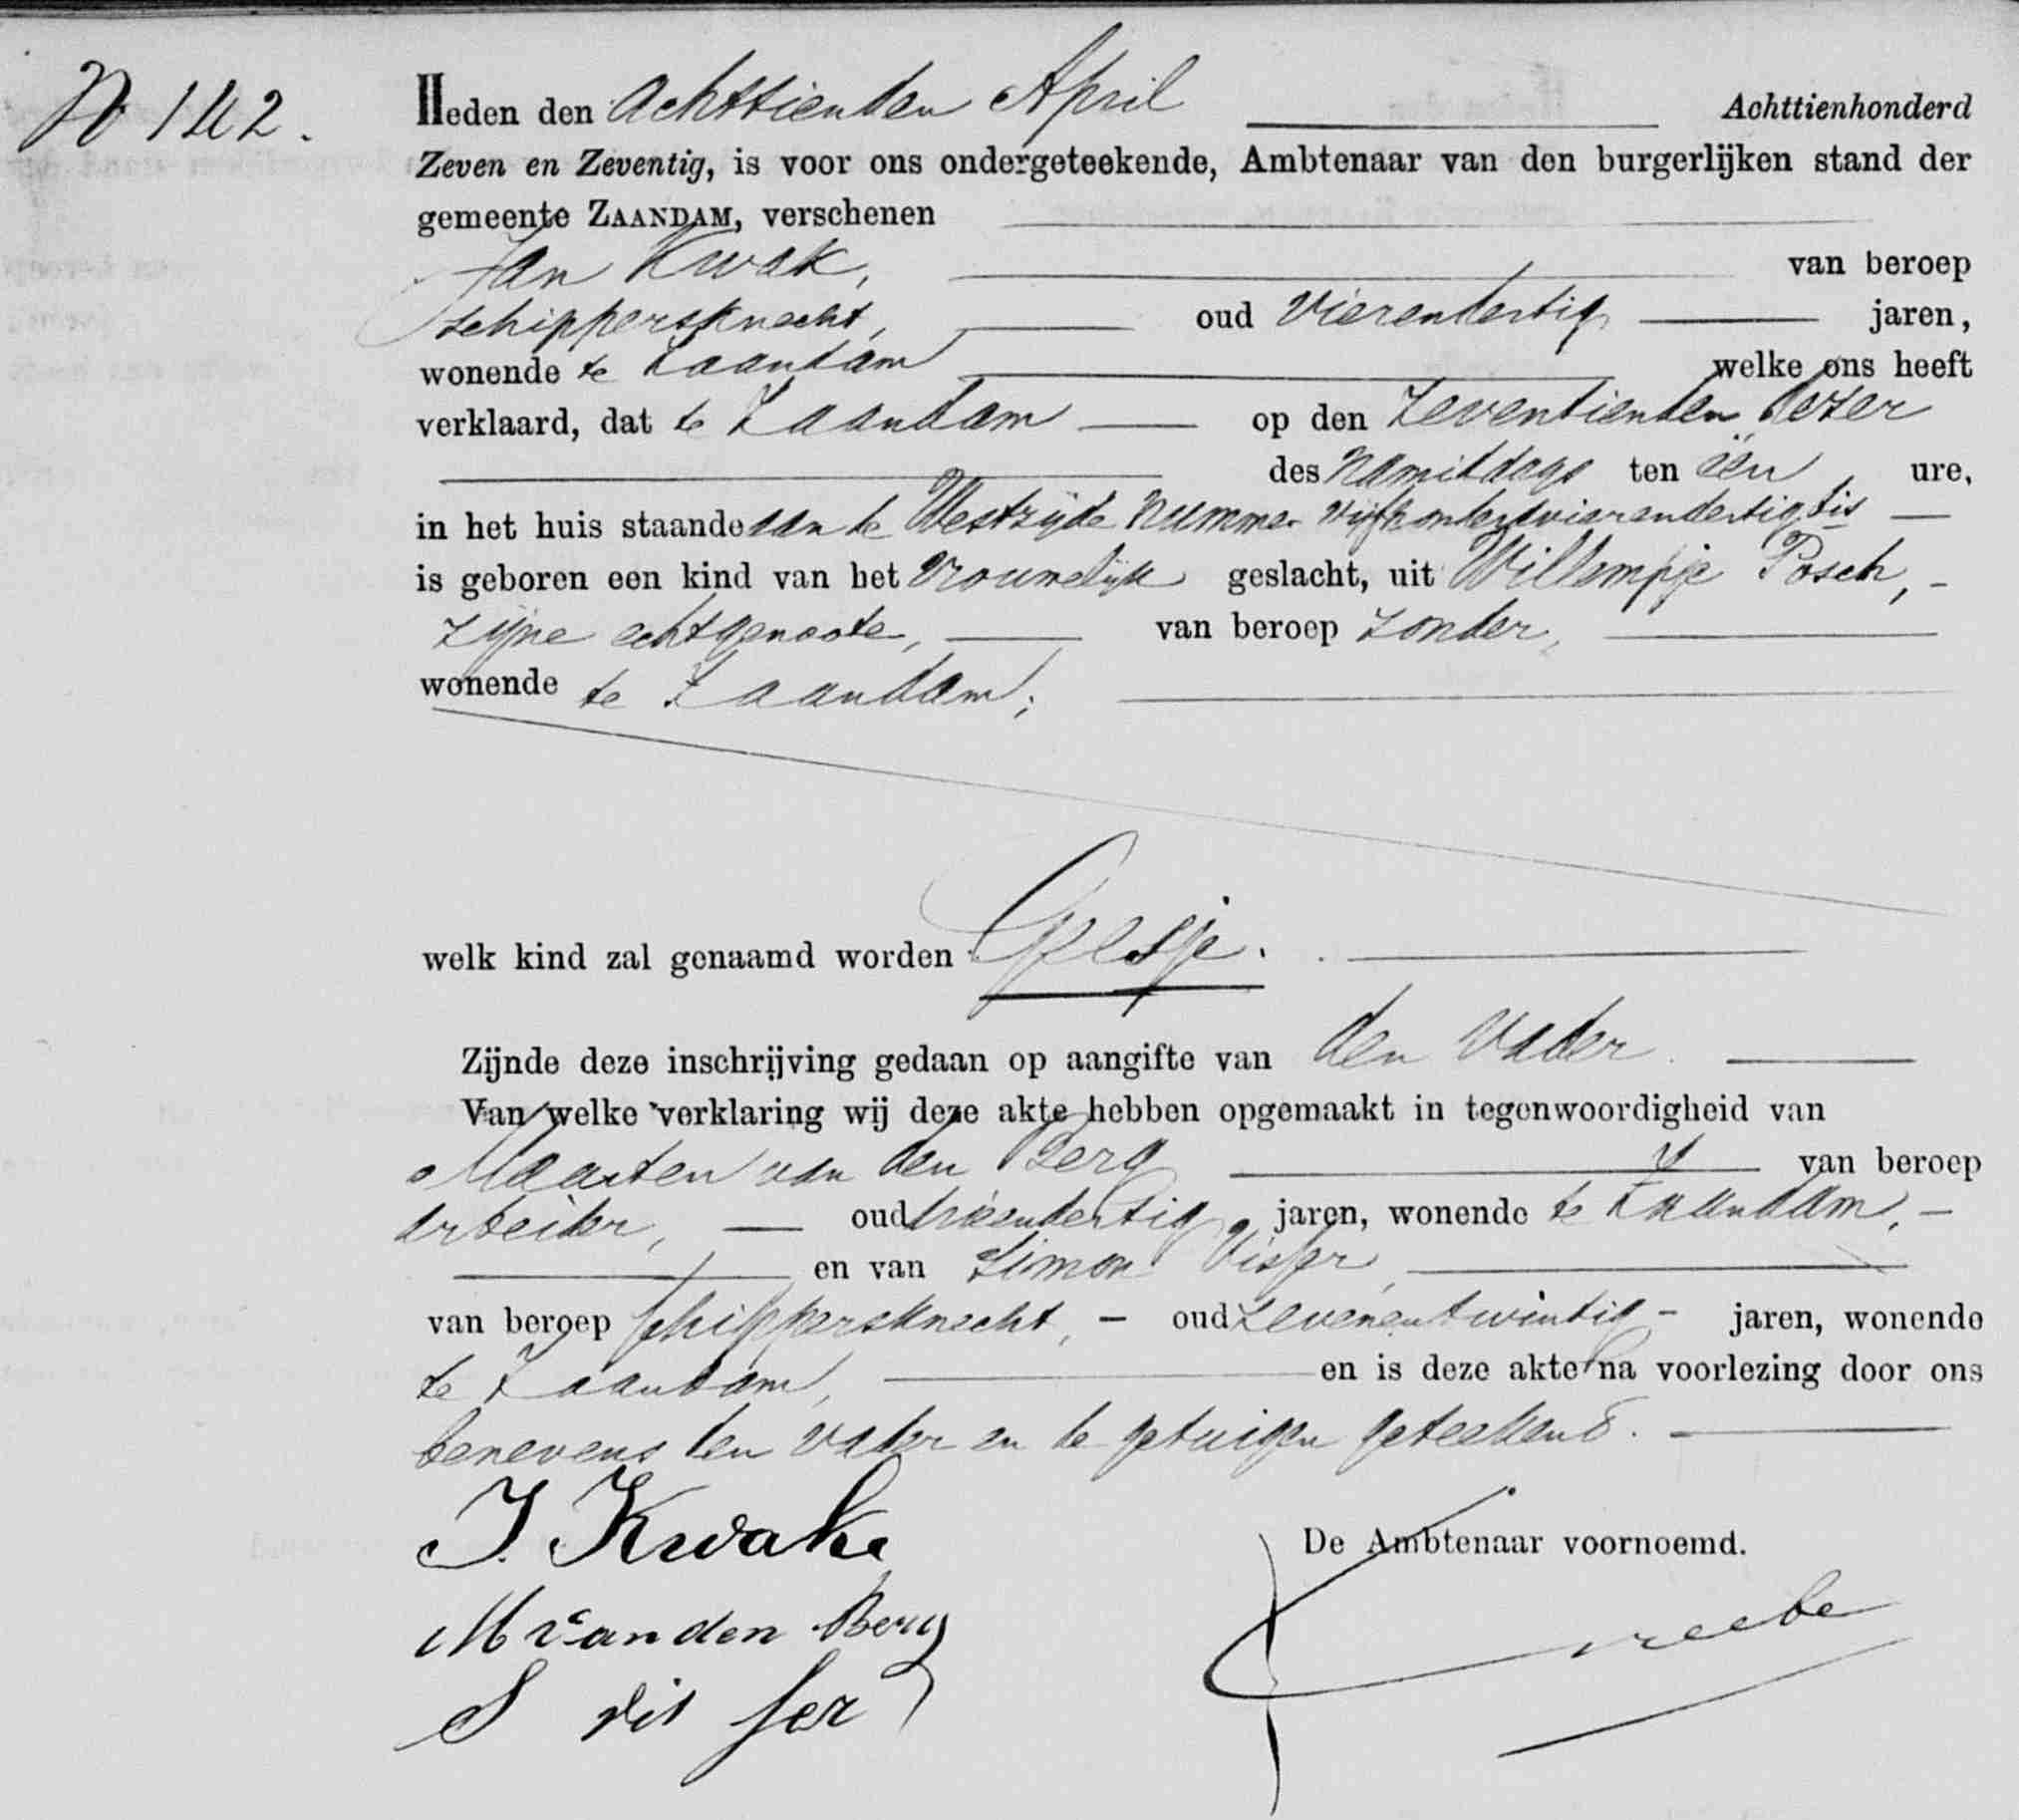 No 142.
Heden den Achttienden April Achttienhonderd
Zeven en Zeventig, is voor ons ondergeteekende, Ambtenaar van den burgerlijken stand der
gemeente ZAANDAM, verschenen
Jan Kwak, van beroep
schippersknecht, oud vierendertig jaren,
wonende te Zaandam welke ons heeft
verklaard, dat te Zaandam op den Zeventienden dezer
des Namiddags ten één ure,
in het huis staande aan de Westzijde nummer vijfhonderdvierendertig bis
is geboren een kind van het Vrouwelijk geslacht, uit Willempje Posch,
zijne echtgenoote, van beroep zonder,
wonende te Zaandam;
welk kind zal genaamd worden Geesje.
Zijnde deze inschrijving gedaan op aangifte van den Vader.
Van welke verklaring wij deze akte hebben opgemaakt in tegenwoordigheid van
Maarten van den Berg van beroep
arbeider, oud drieendertig jaren, wonende te Zaandam,
en van Simon Visser,
van beroep schippersknecht, oud zevenentwintig jaren, wonende
te Zaandam, en is deze akte na voorlezing door ons
benevens den vader en de getuigen geteekend.
J. Kwak De Ambtenaar voornoemd.
M van den Berg
S vis ser